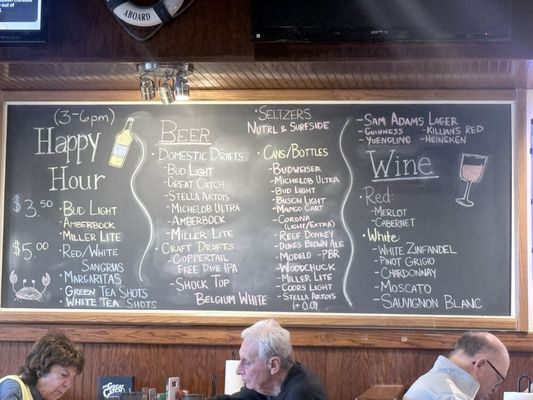 ABOARD
(3-6pm)
Happy
Hour
$3.50
Bud Light
Amberbock
Miller Lite
$5.00
Red/White
Sangrias
Margaritas
Green Tea Shots
White Tea Shots
Beer
Domestic Drafts
-Bud Light
-Great Catch
-Stella Artois
-Michelob Ultra
-Amberbock
-Miller Lite
Craft Drafts
-Coppertail
Free Dive IPA
-Shock Top
Belgium White
Seltzers
Nutrl & Surfside
Cans/Bottles
-Budweiser
-Michelob Ultra
-Bud Light
-Busch Light
-Mango Cart
-Corona
(Light/Extra)
-Reef Donkey
-Dukes Brown Ale
-Modelo -PBR
-Woodchuck
-Miller Lite
-Coors Light
-Stella Artois
-Sam Adams Lager
-Guinness -Killians Red
-Yuengling -Heineken
Wine
Red:
-Merlot
-Cabernet
White:
-White Zinfandel
-Pinot Grigio
-Chardonnay
-Moscato
-Sauvignon Blanc
Great Catch